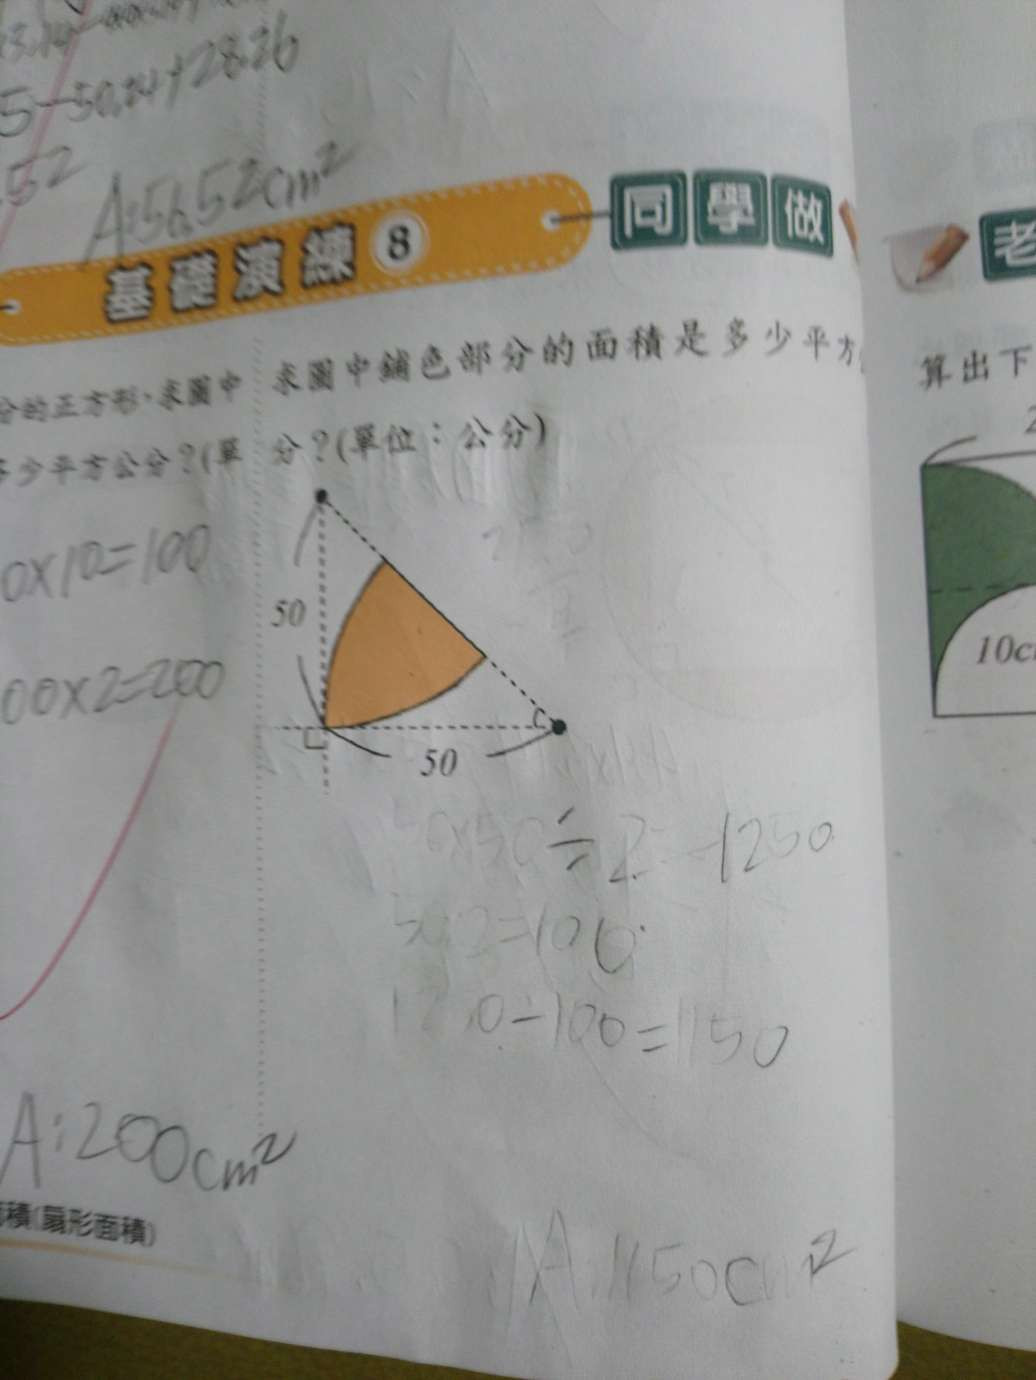 5-50.24+28.26
.52
A:56.52cm²
基礎演練 8 同學做
老
分的正方形,求圖中
多少平方公分?(單
求圖中鋪色部分的面積是多少平方
分?(單位:公分)
算出下
0×10=100
00×2=200
50
50
10c
0×50÷2=1250
50×2=100
1250-100=1150
A:200cm²
面積(扇形面積)
A:1150cm²